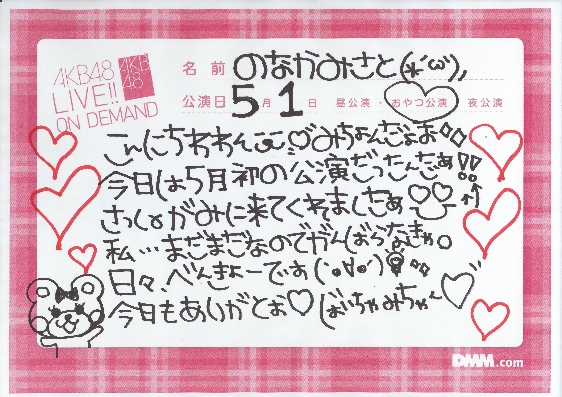 AKB48
LIVE!!
ON DEMAND
AKB
48
名前 のなかみさと(*´ω`)
公演日 5月1日 昼公演・おやつ公演・夜公演
こんにちわわん♡みちょんだょぉ
今日は5月初の公演だったんだぁ!!
さっしょがみに来てくれましたぁ♡♡
私…まだまだなのでがんばらなきゃ。
日々、べんきょーです(´∀`)
今日もありがとぉ♡ ばいちゃみちゃ〜♡
DMM.com